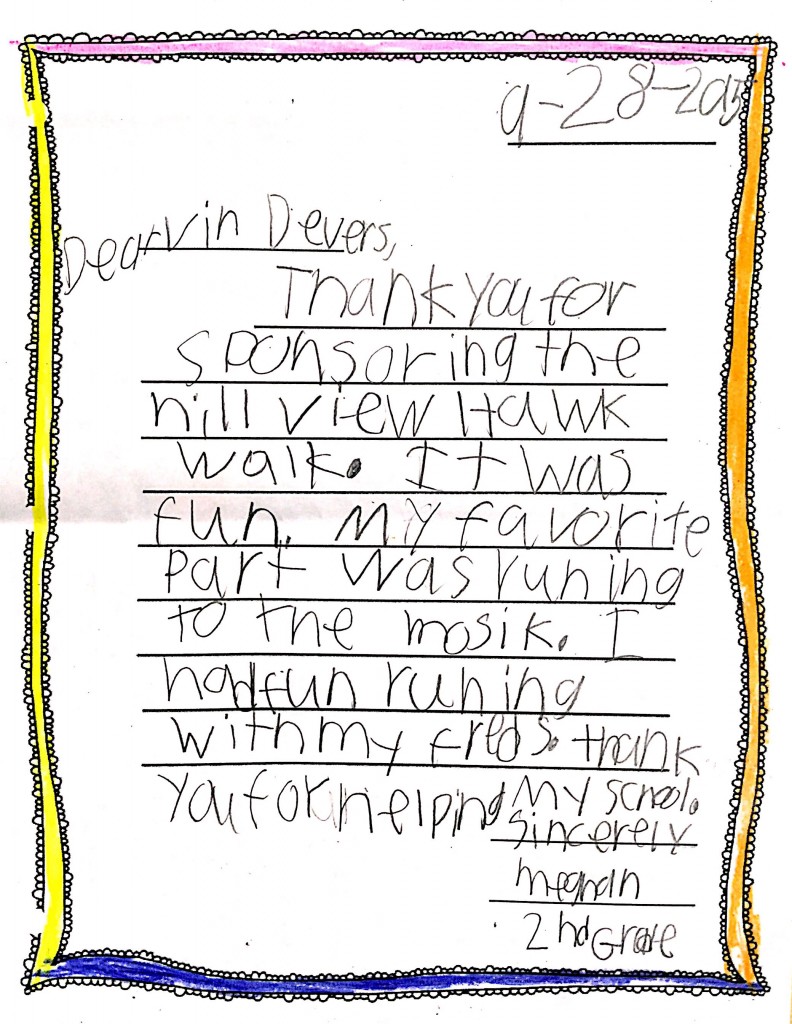 9-28-2015
Dear Vin Devers,
Thank you for
sponsoring the
hill view Hawk
walk. It was
fun. My favorite
part was runing
to the mosik. I
had fun runing
with my freds. thank
you for helping my school.
Sincerely
meghan
2nd Grade